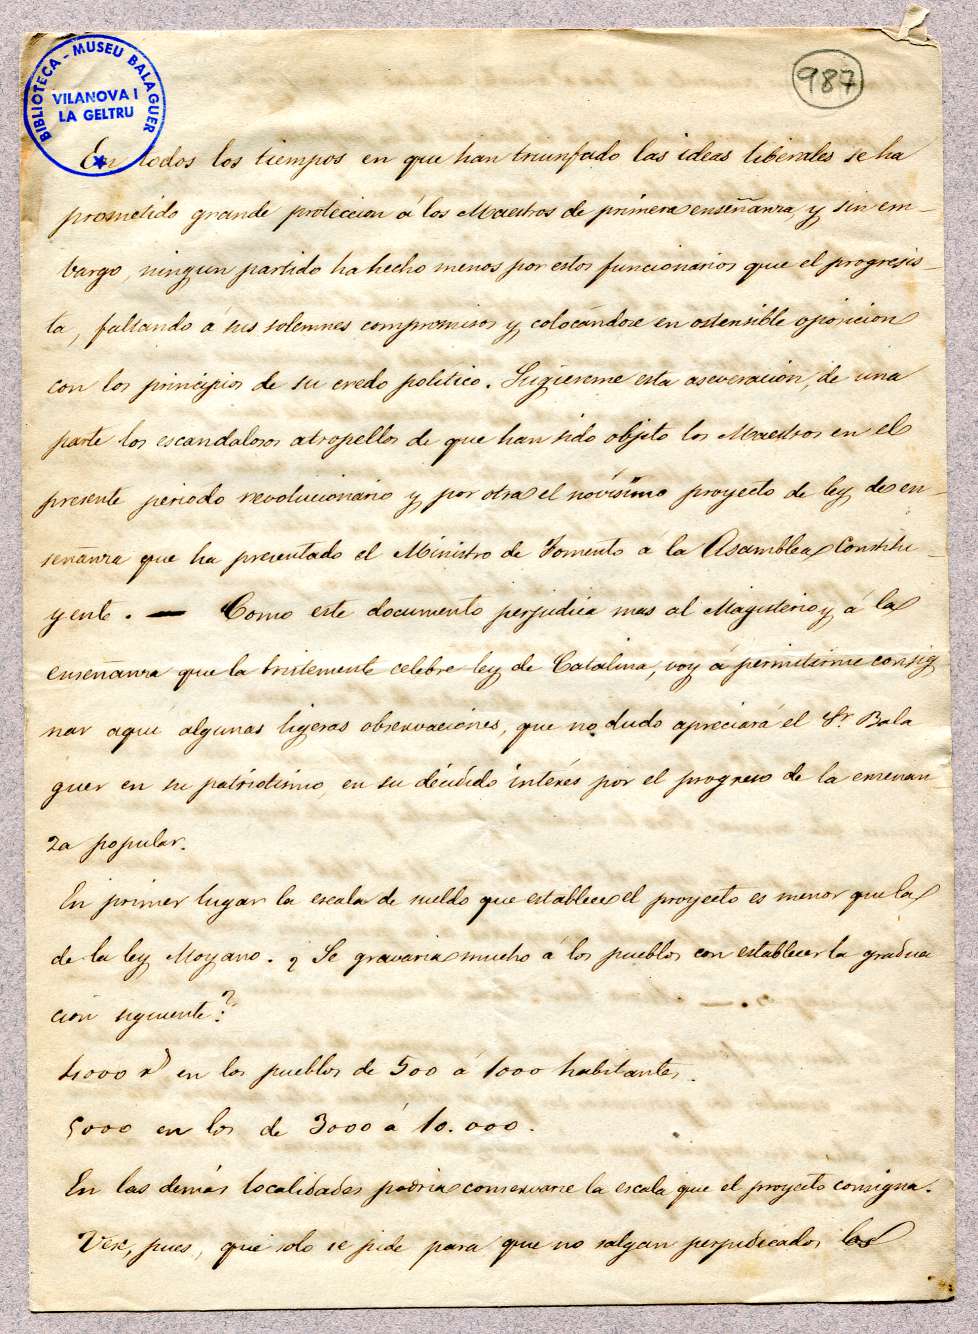 BIBLIOTECA - MUSEU BALAGUER
VILANOVA I
LA GELTRU
987
En todos los tiempos en que han triunfado las ideas liberales se ha
prometido grande proteccion á los Maestros de primera enseñanza, y sin em-
bargo, ningun partido ha hecho menos por estos funcionarios que el progresis-
ta, faltando á sus solemnes compromisos y colocándose en ostensible oposicion
con los principios de su credo politico. Sugiereme esta aseveracion, de una
parte los escandalosos atropellos de que han sido objeto los Maestros en el
presente periodo revolucionario y por otra el novísimo proyecto de ley de en-
señanza que ha presentado el Ministro de Fomento á la Asamblea Constitu-
yente. — Como este documento perjudica mas al Magisterio y á la
enseñanza que la tristemente celebre ley de Catalina, voy á permitirme consig
nar aqui algunas ligeras observaciones, que no dudo apreciará el Sr Bala
guer en su patriotismo en su decidido interés por el progreso de la ensenan
za popular.
En primer lugar la escala de sueldo que establece el proyecto es menor que la
de la ley Moyano. ¿ Se gravaria mucho á los pueblos con establecer la gradua
cion siguiente?
4000 rs en los pueblos de 500 á 1000 habitantes.
5000 en los de 3000 á 10.000.
En las demás localidades podria conservarse la escala que el proyecto consigna.
Vese, pues, que solo se pide para que no salgan perjudicados los